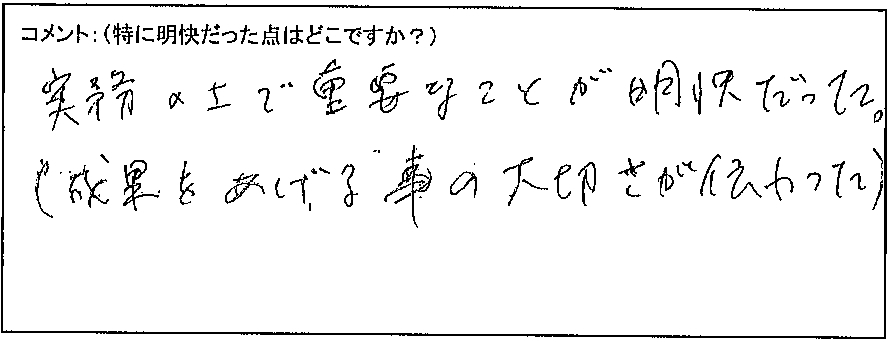 コメント：（特に明快だった点はどこですか？）
実務の上で重要なことが明快だった。
（成果をあげる事の大切さが伝わった）